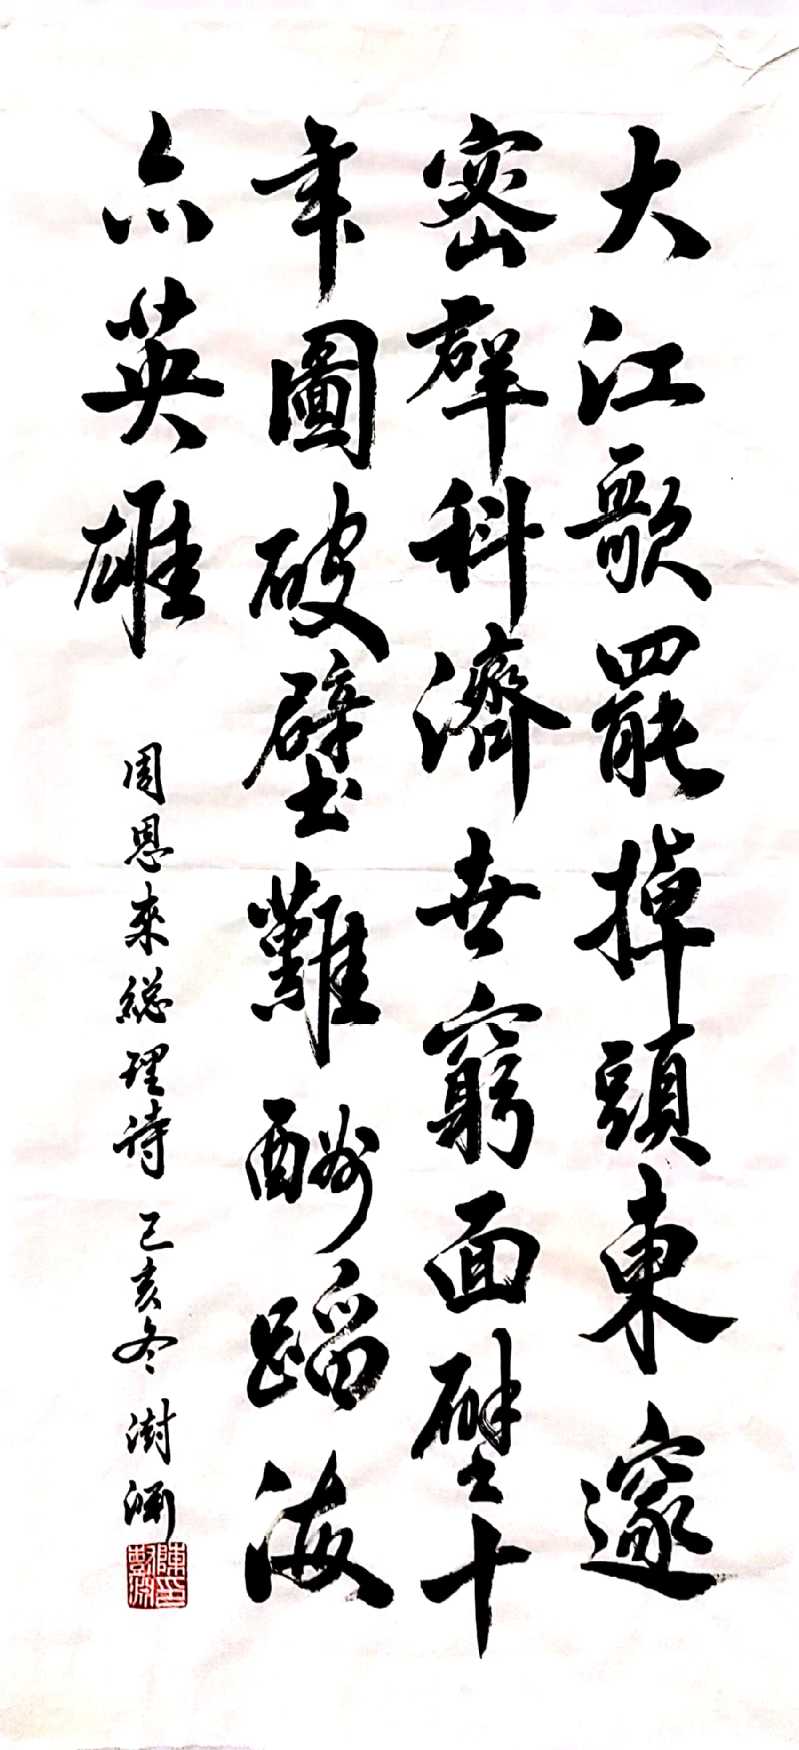 大江歌罷掉頭東邃
密群科濟世窮面壁十
年圖破壁難酬蹈海
亦英雄
周恩來總理詩 己亥冬 澍淵